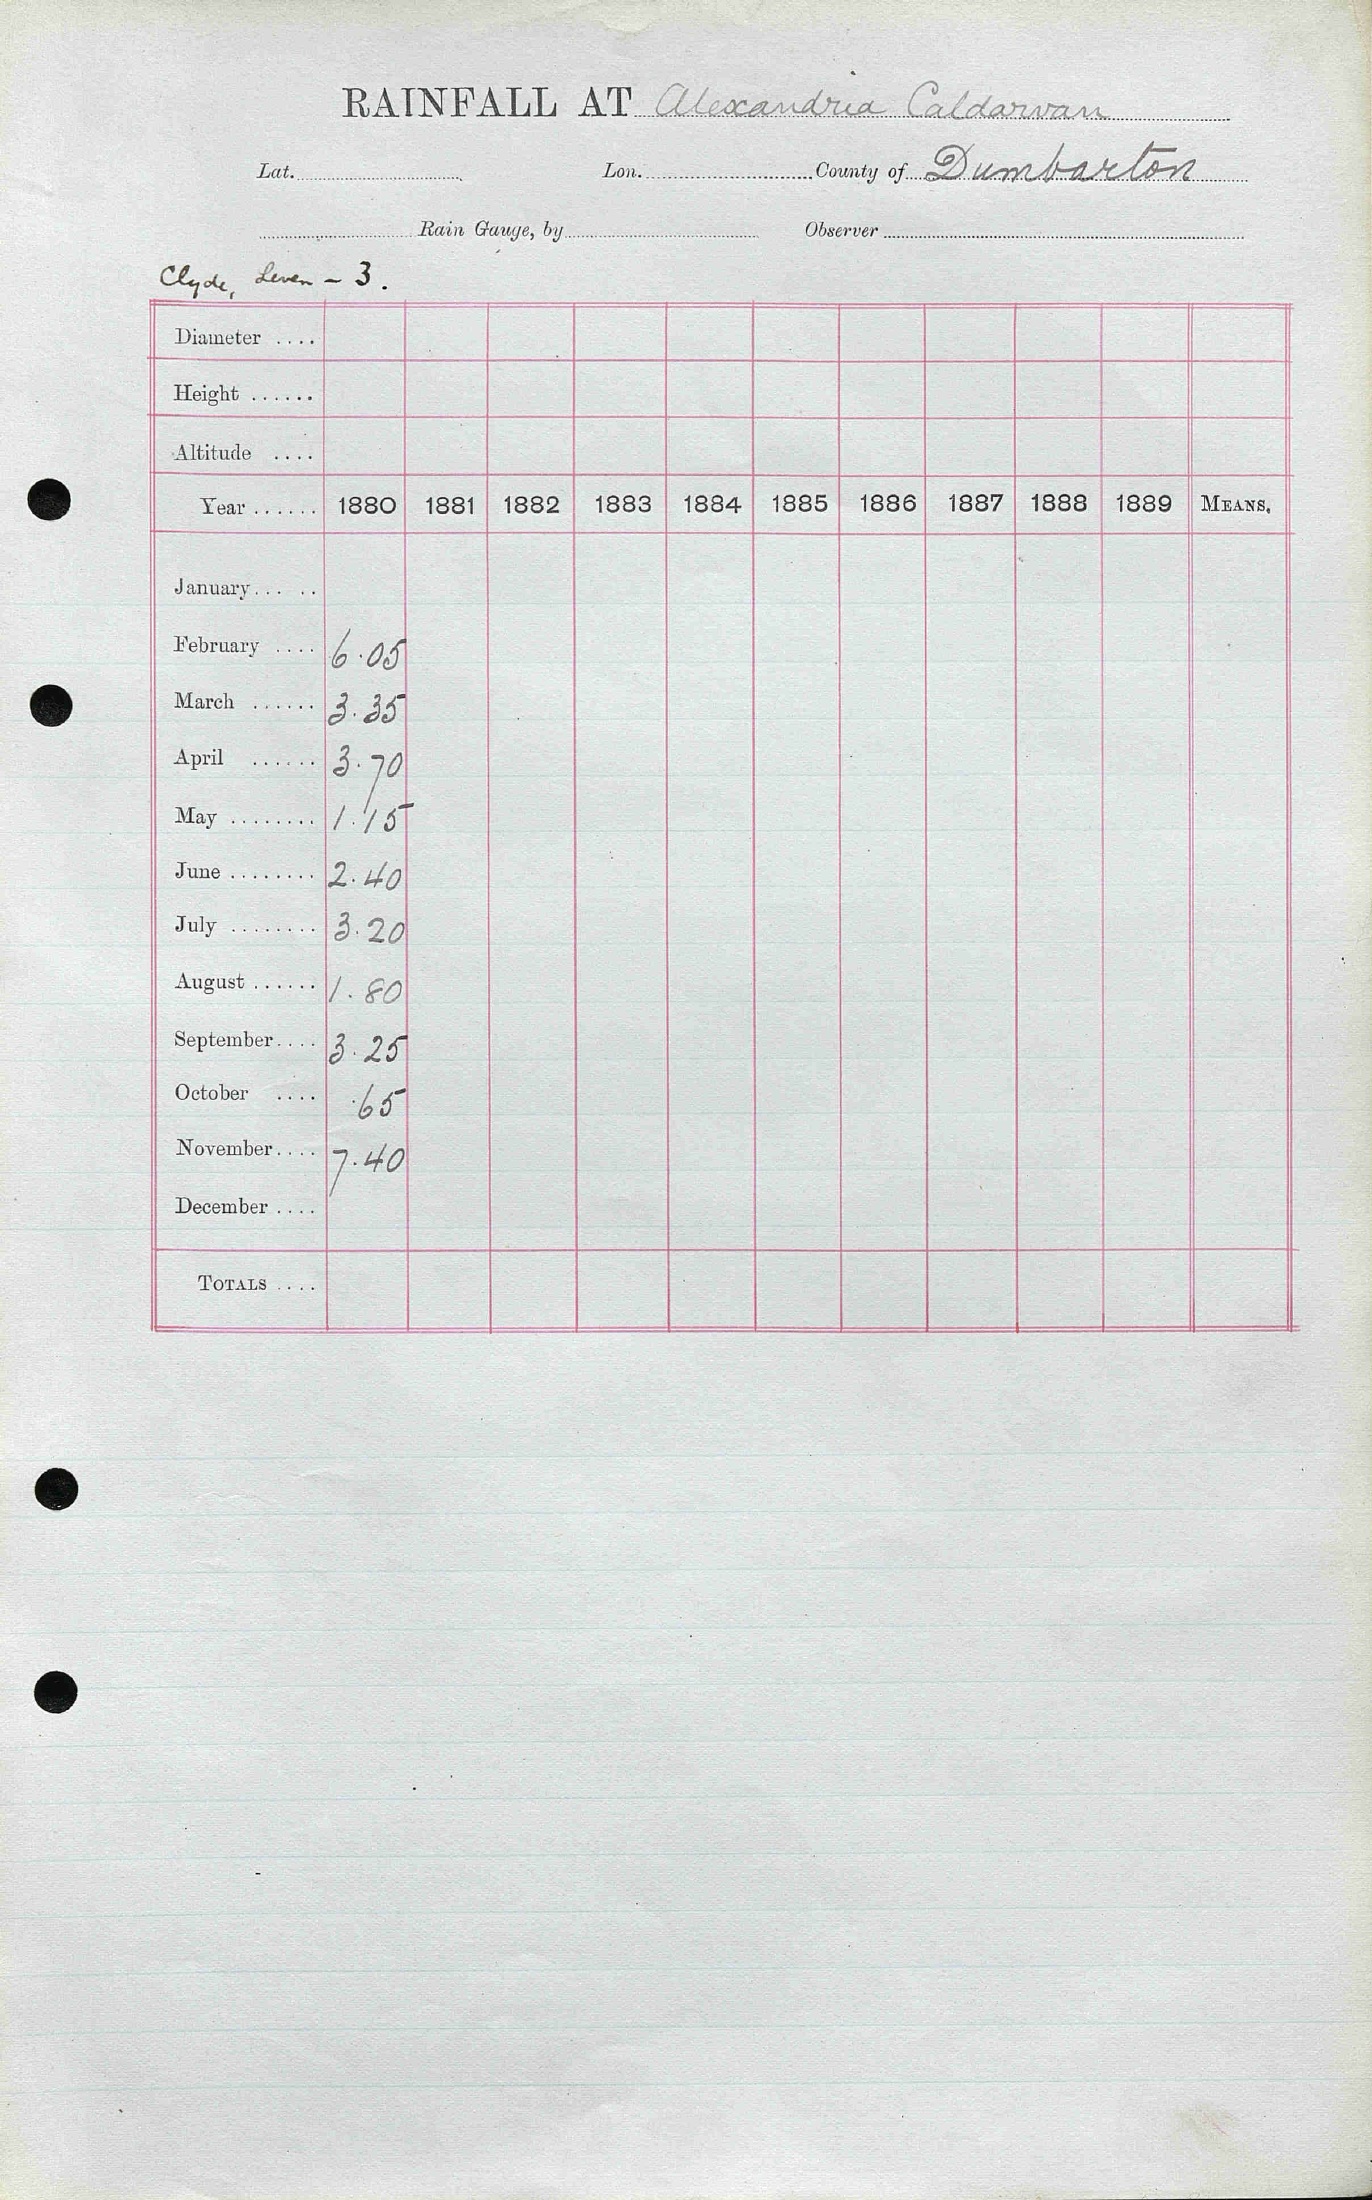 RAINFALL AT Alexandria Caldarvan
Lat. Lon. County of Dumbarton
Rain Gauge, by Observer
Clyde, Leven - 3.
Diameter ....
Height ......
Altitude ....
Year ...... 1880 1881 1882 1883 1884 1885 1886 1887 1888 1889 MEANS.
January... ..
February .... 6.05
March ...... 3.35
April ...... 3.70
May ........ 1.15
June ........ 2.40
July ........ 3.20
August ...... 1.80
September.... 3.25
October .... .65
November.... 7.40
December ....
TOTALS ....